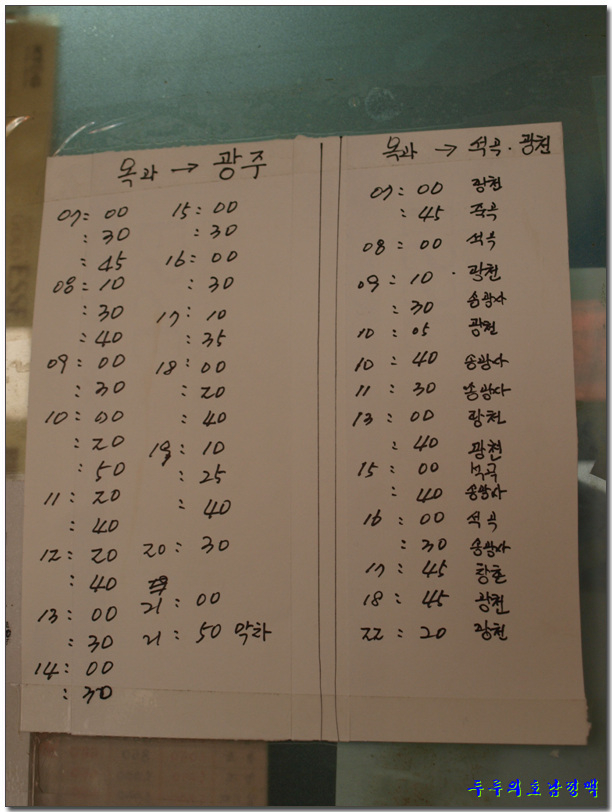 옥과 → 광주
07: 00
: 30
: 45
08: 10
: 30
: 40
09: 00
: 30
10: 00
: 20
: 50
11: 20
: 40
12: 20
: 40
13: 00
: 30
14: 00
: 30
15: 00
: 30
16: 00
: 30
17: 10
: 35
18: 00
: 20
: 40
19: 10
: 25
: 40
20: 30
21: 00
21: 50 막차
옥과 → 석곡·광천
07: 00 광천
: 45 죽곡
08: 00 석곡
09: 10 · 광천
: 30 송광사
10: 05 광천
10: 40 송광사
11: 30 송광사
13: 00 광천
: 40 광천
15: 00
: 40 송광사
16: 00 석곡
: 30 송광사
17: 45
18: 45 광천
22: 20 광천
두두의호남정맥